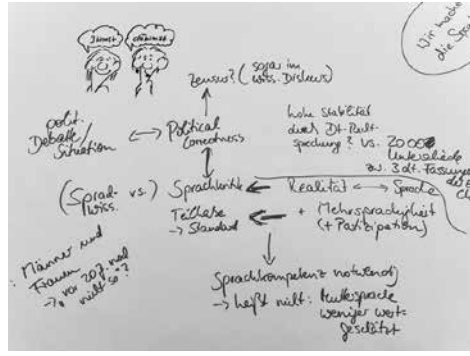 Wir mache
die Spra
stimmt
Zensur? (sogar im
wiss. Diskurs)
polit.
Debatte/
Situation
Political
Correctness
hohe Stabilität
durch Dt. Recht-
sprechung? vs. 20000
Unterschiede
zw. 3 dt. Fassungen
(Sprach-
wiss. vs.)
Sprachkritik
Realität
Sprache
Teilhabe
→ Standard
+ Mehrsprachigkeit
(+ Partizipation)
: Männer und
Frauen
→ vor 20 J. noch
nicht so?
Sprachkompetenz notwendig
→ heißt nicht: Muttersprache
weniger wert-
geschätzt